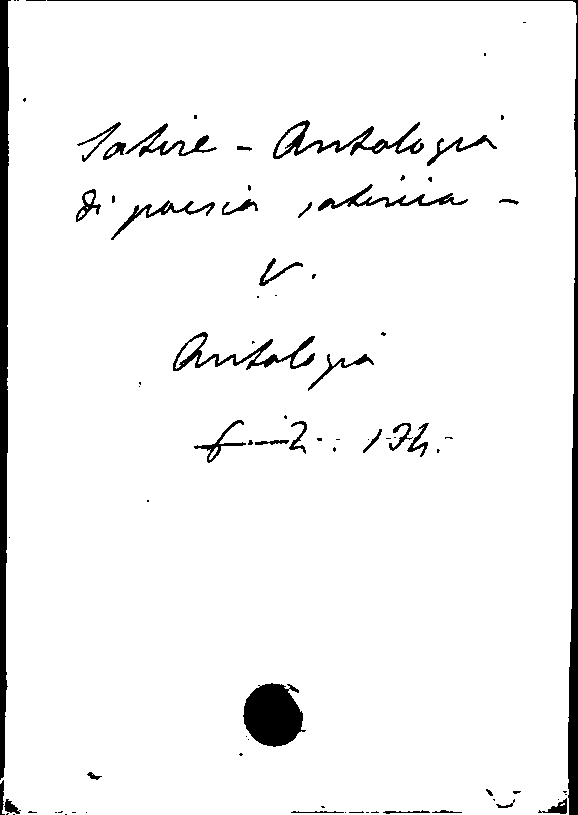 Satire - Antologia
di poesia satirica -
V.
Antologia